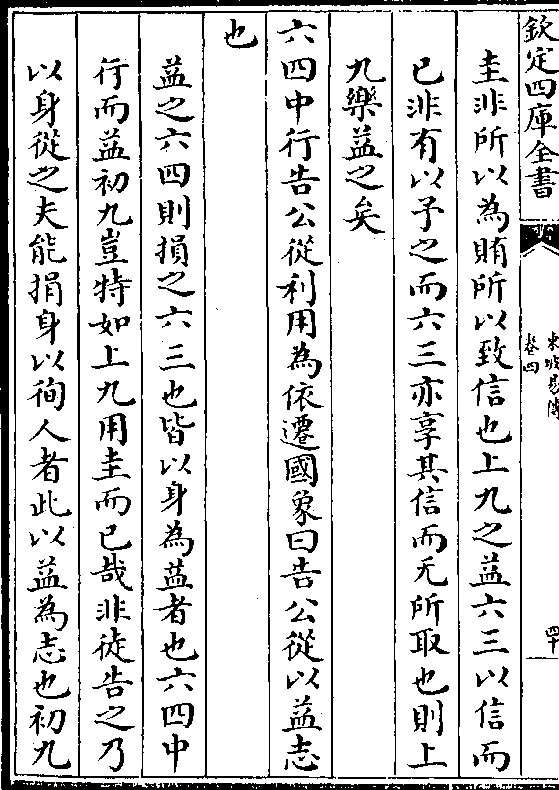 欽定四庫全書
東坡易傳
卷四
四十
圭非所以為賄所以致信也上九之益六三以信而
已非有以予之而六三亦享其信而无所取也則上
九樂益之矣
六四中行告公從利用為依遷國象曰告公從以益志
也
益之六四則損之六三也皆以身為益者也六四中
行而益初九豈特如上九用圭而已哉非徒告之乃
以身從之夫能捐身以徇人者此以益為志也初九